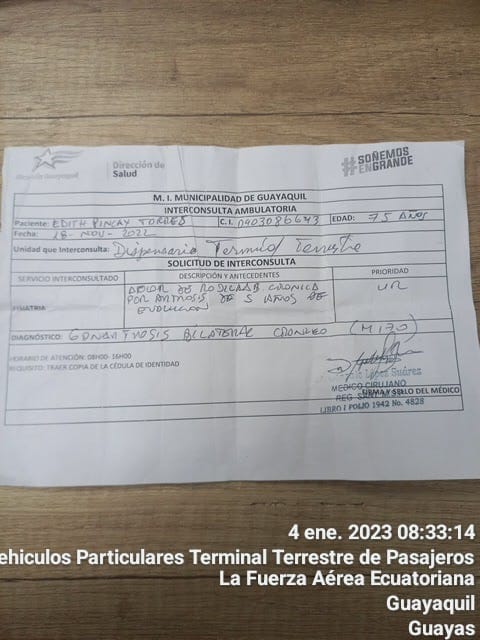 Alcaldía Guayaquil
Dirección de
Salud
#SOÑEMOS
ENGRANDE
M. I. MUNICIPALIDAD DE GUAYAQUIL
INTERCONSULTA AMBULATORIA
Paciente: EDITH PINCAY TORRES C.I. 0903086643 EDAD: 75 AÑOS
Fecha: 18-NOV-2022
Unidad que Interconsulta: Dispensario Terminal Terrestre
SOLICITUD DE INTERCONSULTA
SERVICIO INTERCONSULTADO DESCRIPCIÓN Y ANTECEDENTES PRIORIDAD
DOLOR DE RODILLAS CRONICA
POR ARTROSIS DE 5 AÑOS DE
EVOLUCION
DIAGNÓSTICO: GONARTROSIS BILATERAL CRONICO (M170)
HORARIO DE ATENCIÓN: 08H00- 16H00
REQUISITO: TRAER COPIA DE LA CÉDULA DE IDENTIDAD
López Suárez
MEDICO CIRUJANO
FIRMA Y SELLO DEL MÉDICO
LIBRO I FOLIO 1942 No. 4828
4 ene. 2023 08:33:14
ehiculos Particulares Terminal Terrestre de Pasajeros
La Fuerza Aérea Ecuatoriana
Guayaquil
Guayas